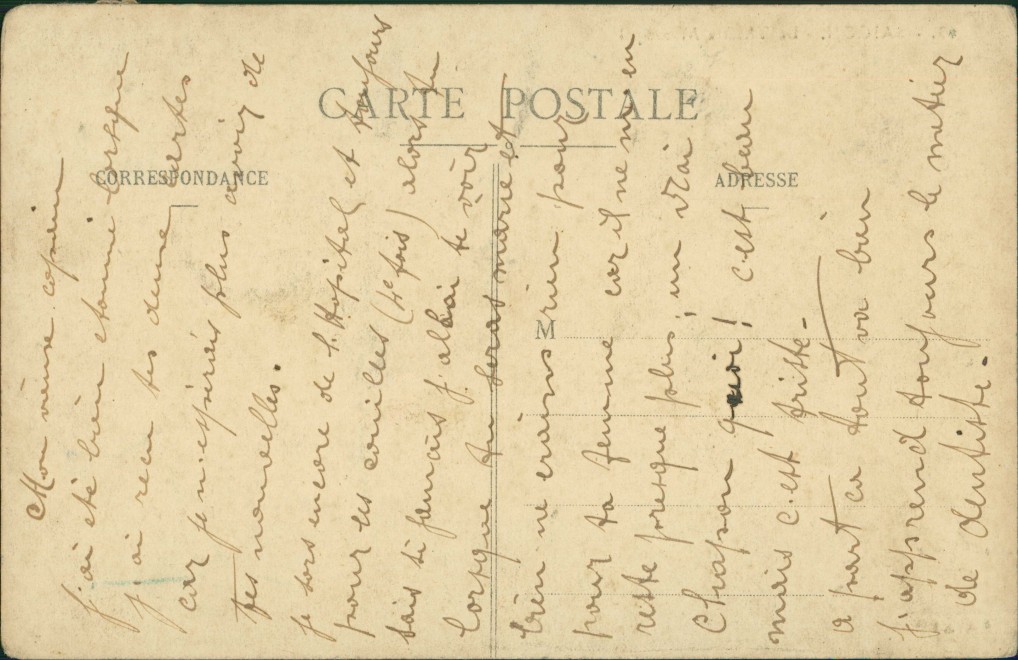 CARTE POSTALE
CORRESPONDANCE
ADRESSE
M
Mon vieux copain
j'ai été bien etonné lorsque
j'ai recu tes deux cartes
car je n'espérais plus avoir de
tes nouvelles.
je sors encore de l'Hopital et toujours
pour les couilles (7e fois) alors tu
sais si jamais j'allai te voir
lorsque tu seras marié et
bien ne crains rien pour
pour ta femme car il ne m'en
reste presque plus; un vrai
Chapon quoi! c'est beau
mais c'est triste.
a part ca tout va bien
j'apprend toujours le metier
de dentiste.